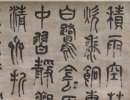 積雨空林
炊黍餉東
白鷺陰
中習靜觀
清齋折